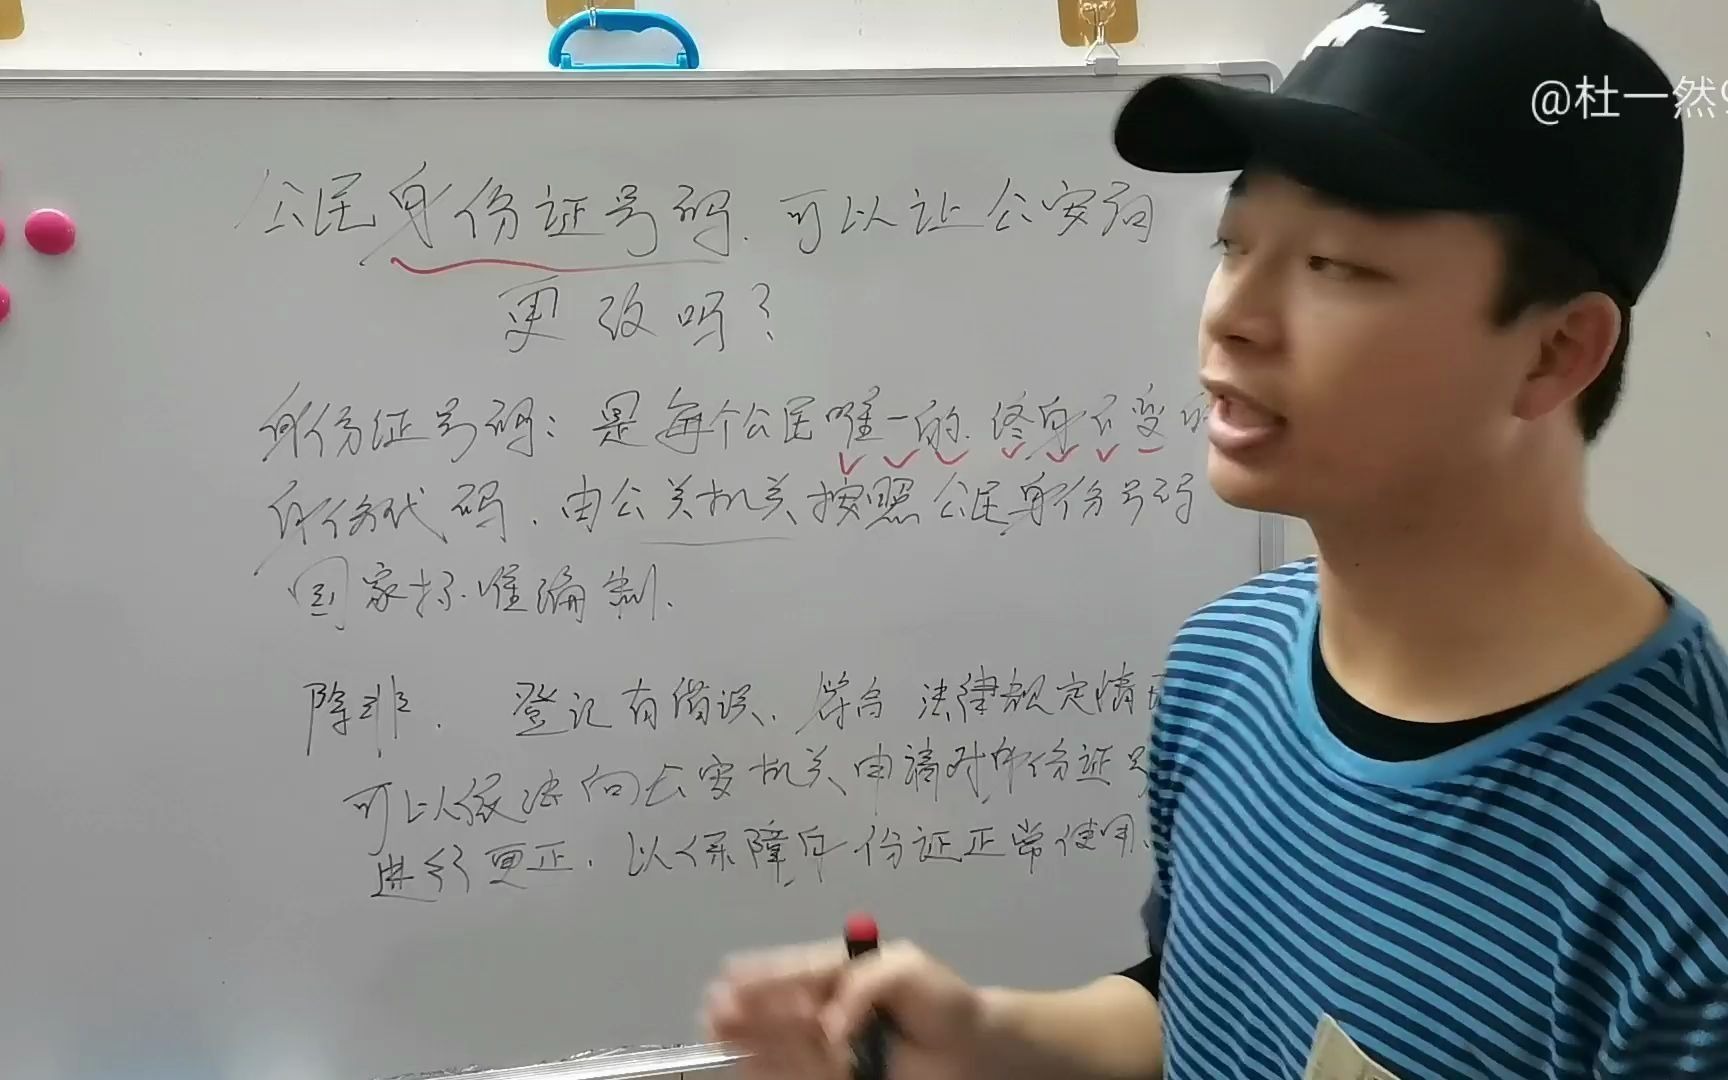 @杜一然9
公民身份证号码.可以让公安局
更改吗?
身份证号码:是每个公民唯一的.终身不变的
身份代码.由公关机关按照公民身份号码
国家标准编制.
除非.登记有错误.符合法律规定情
可以依法向公安机关申请对身份证号
进行更正.以保障身份证正常使用.